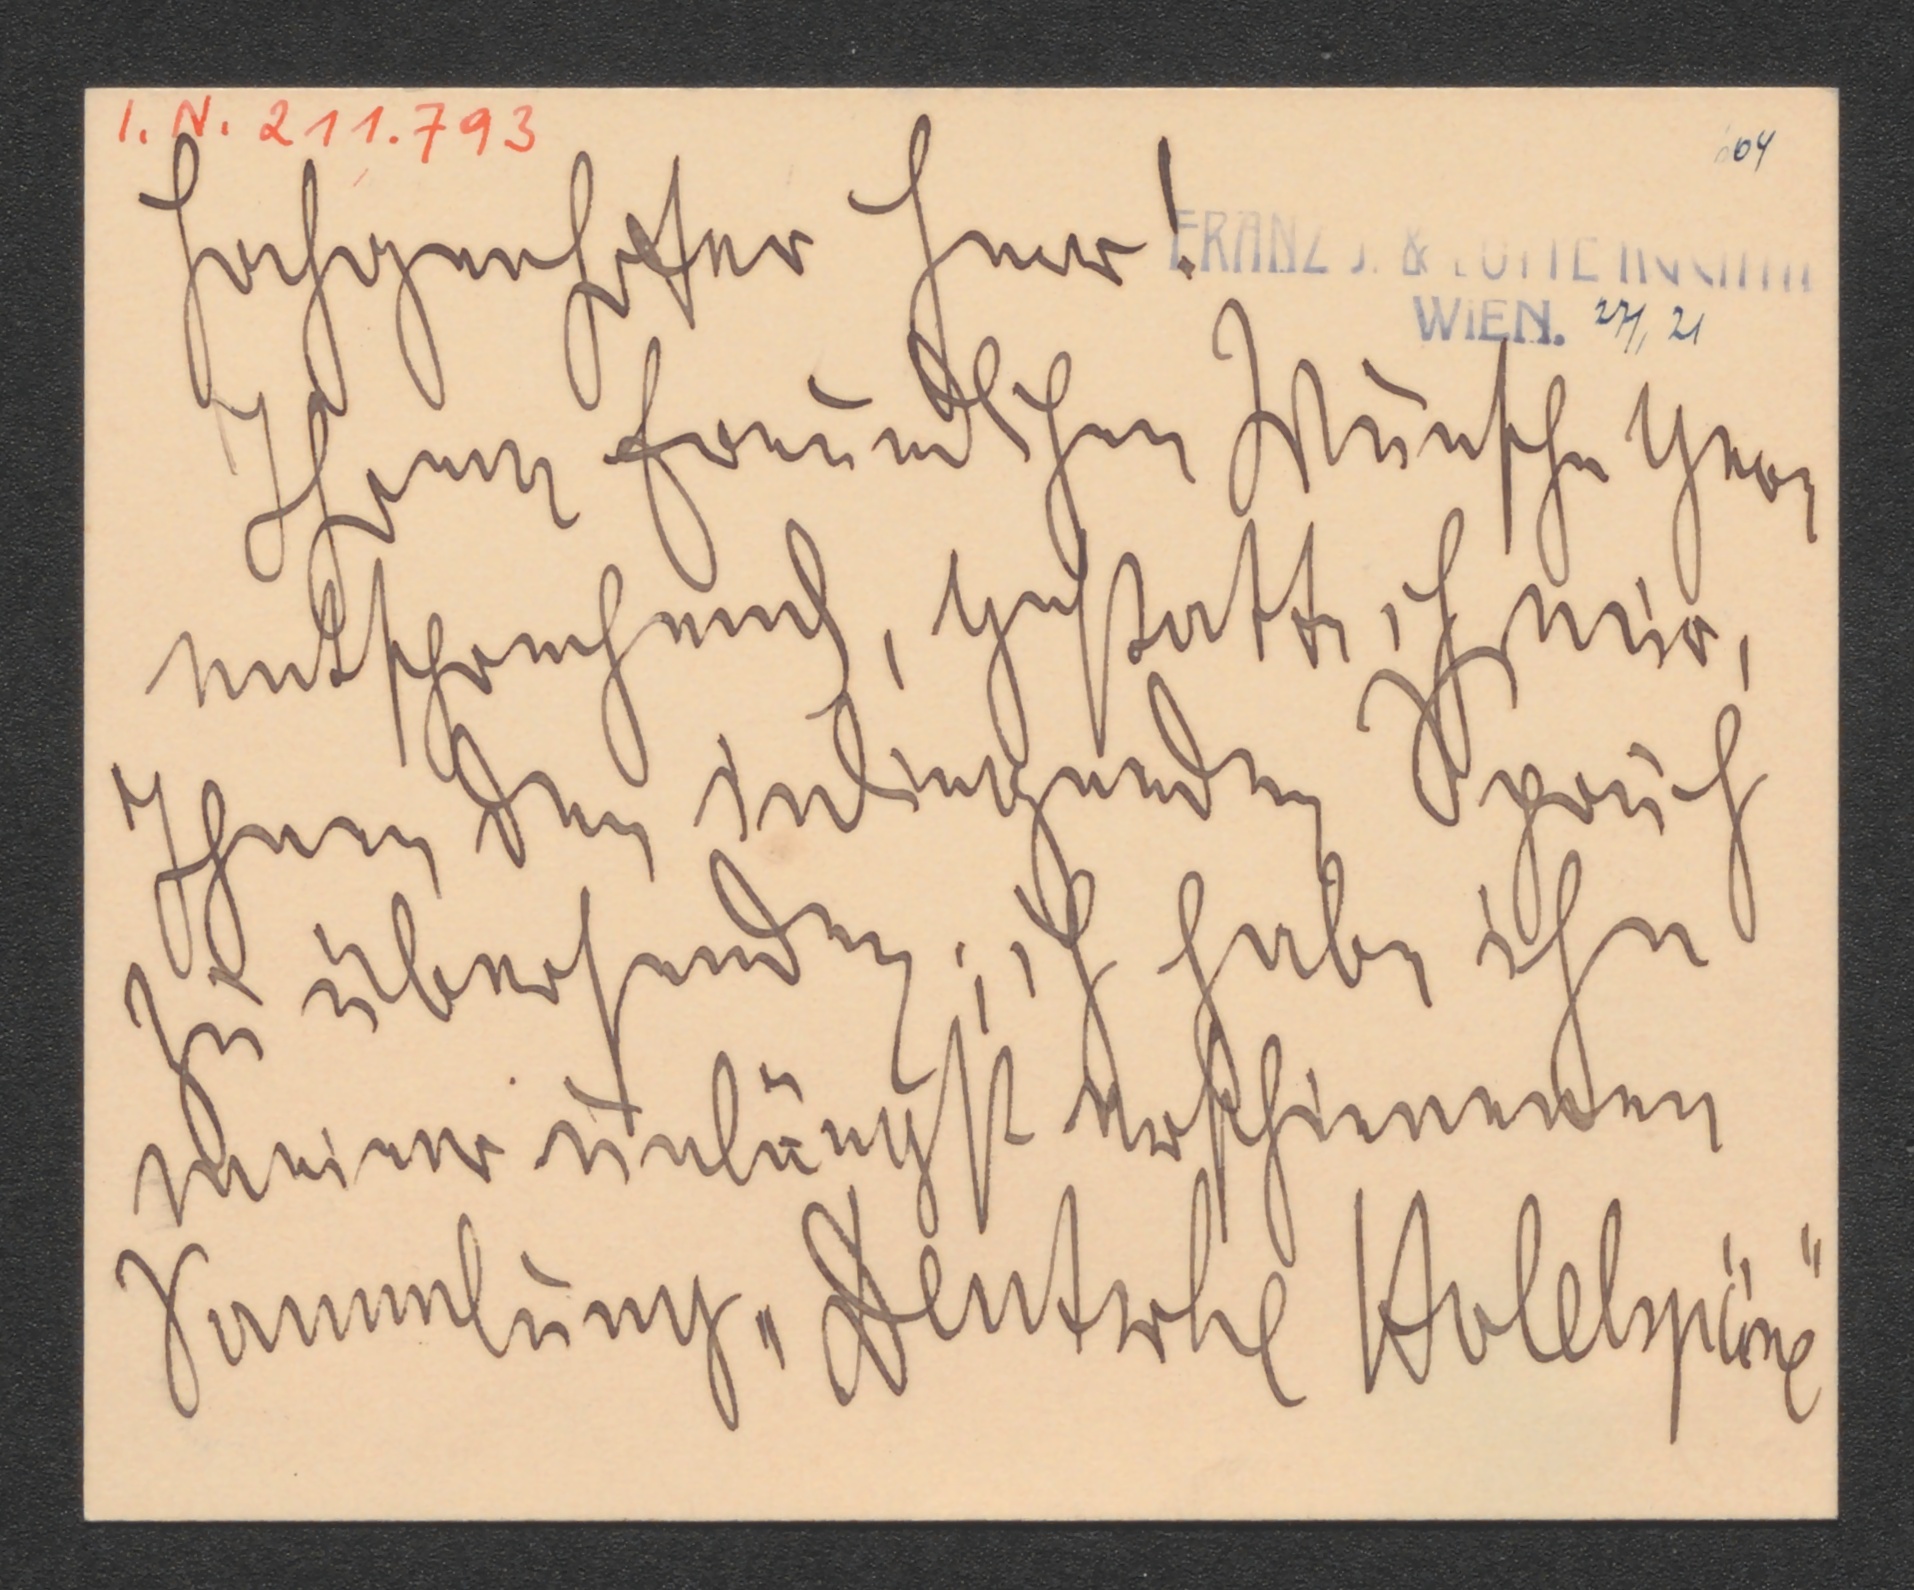 I. N. 211.793
604
Hochgeehrter Herr!
FRANZ J. &
WIEN. 27/, 21
Ihrem freundlichen Wunsche gern
entsprechend, gestatte ich mir,
Ihnen den inliegenden Spruch
zu übersenden; ich habe ihn
meiner unlängst erschienenen
Sammlung „Deutsche Hobelspäne"